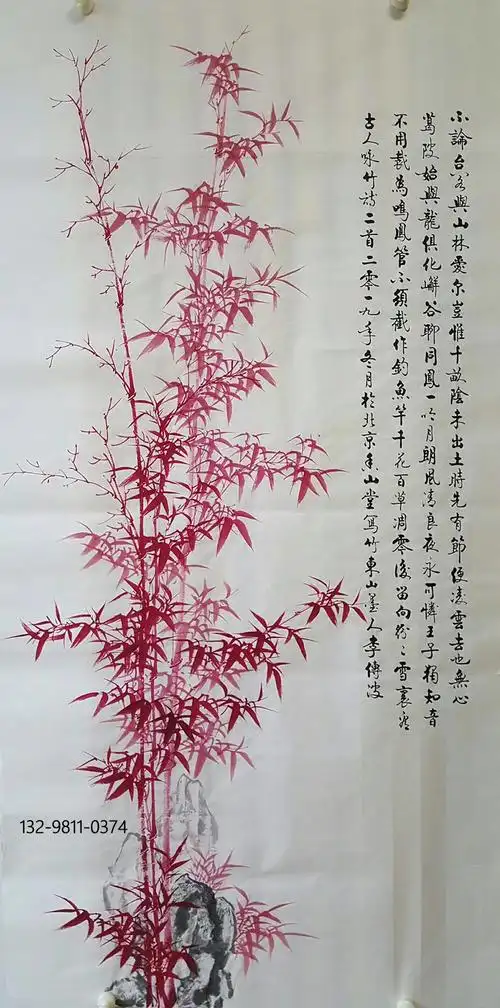 不論台閣與山林愛尔豈惟十畝陰未出土時先有節便凌雲去也無心
葛陂始與龍俱化嶰谷聊同鳳一吟月朗風清良夜永可憐王子獨知音
不用裁為鳴鳳管不須截作釣魚竿千花百草凋零後留向紛〻雪裏看
古人咏竹詩二首二零一九年冬月於北京香山堂寫竹東山墨人李傳波
132-9811-0374